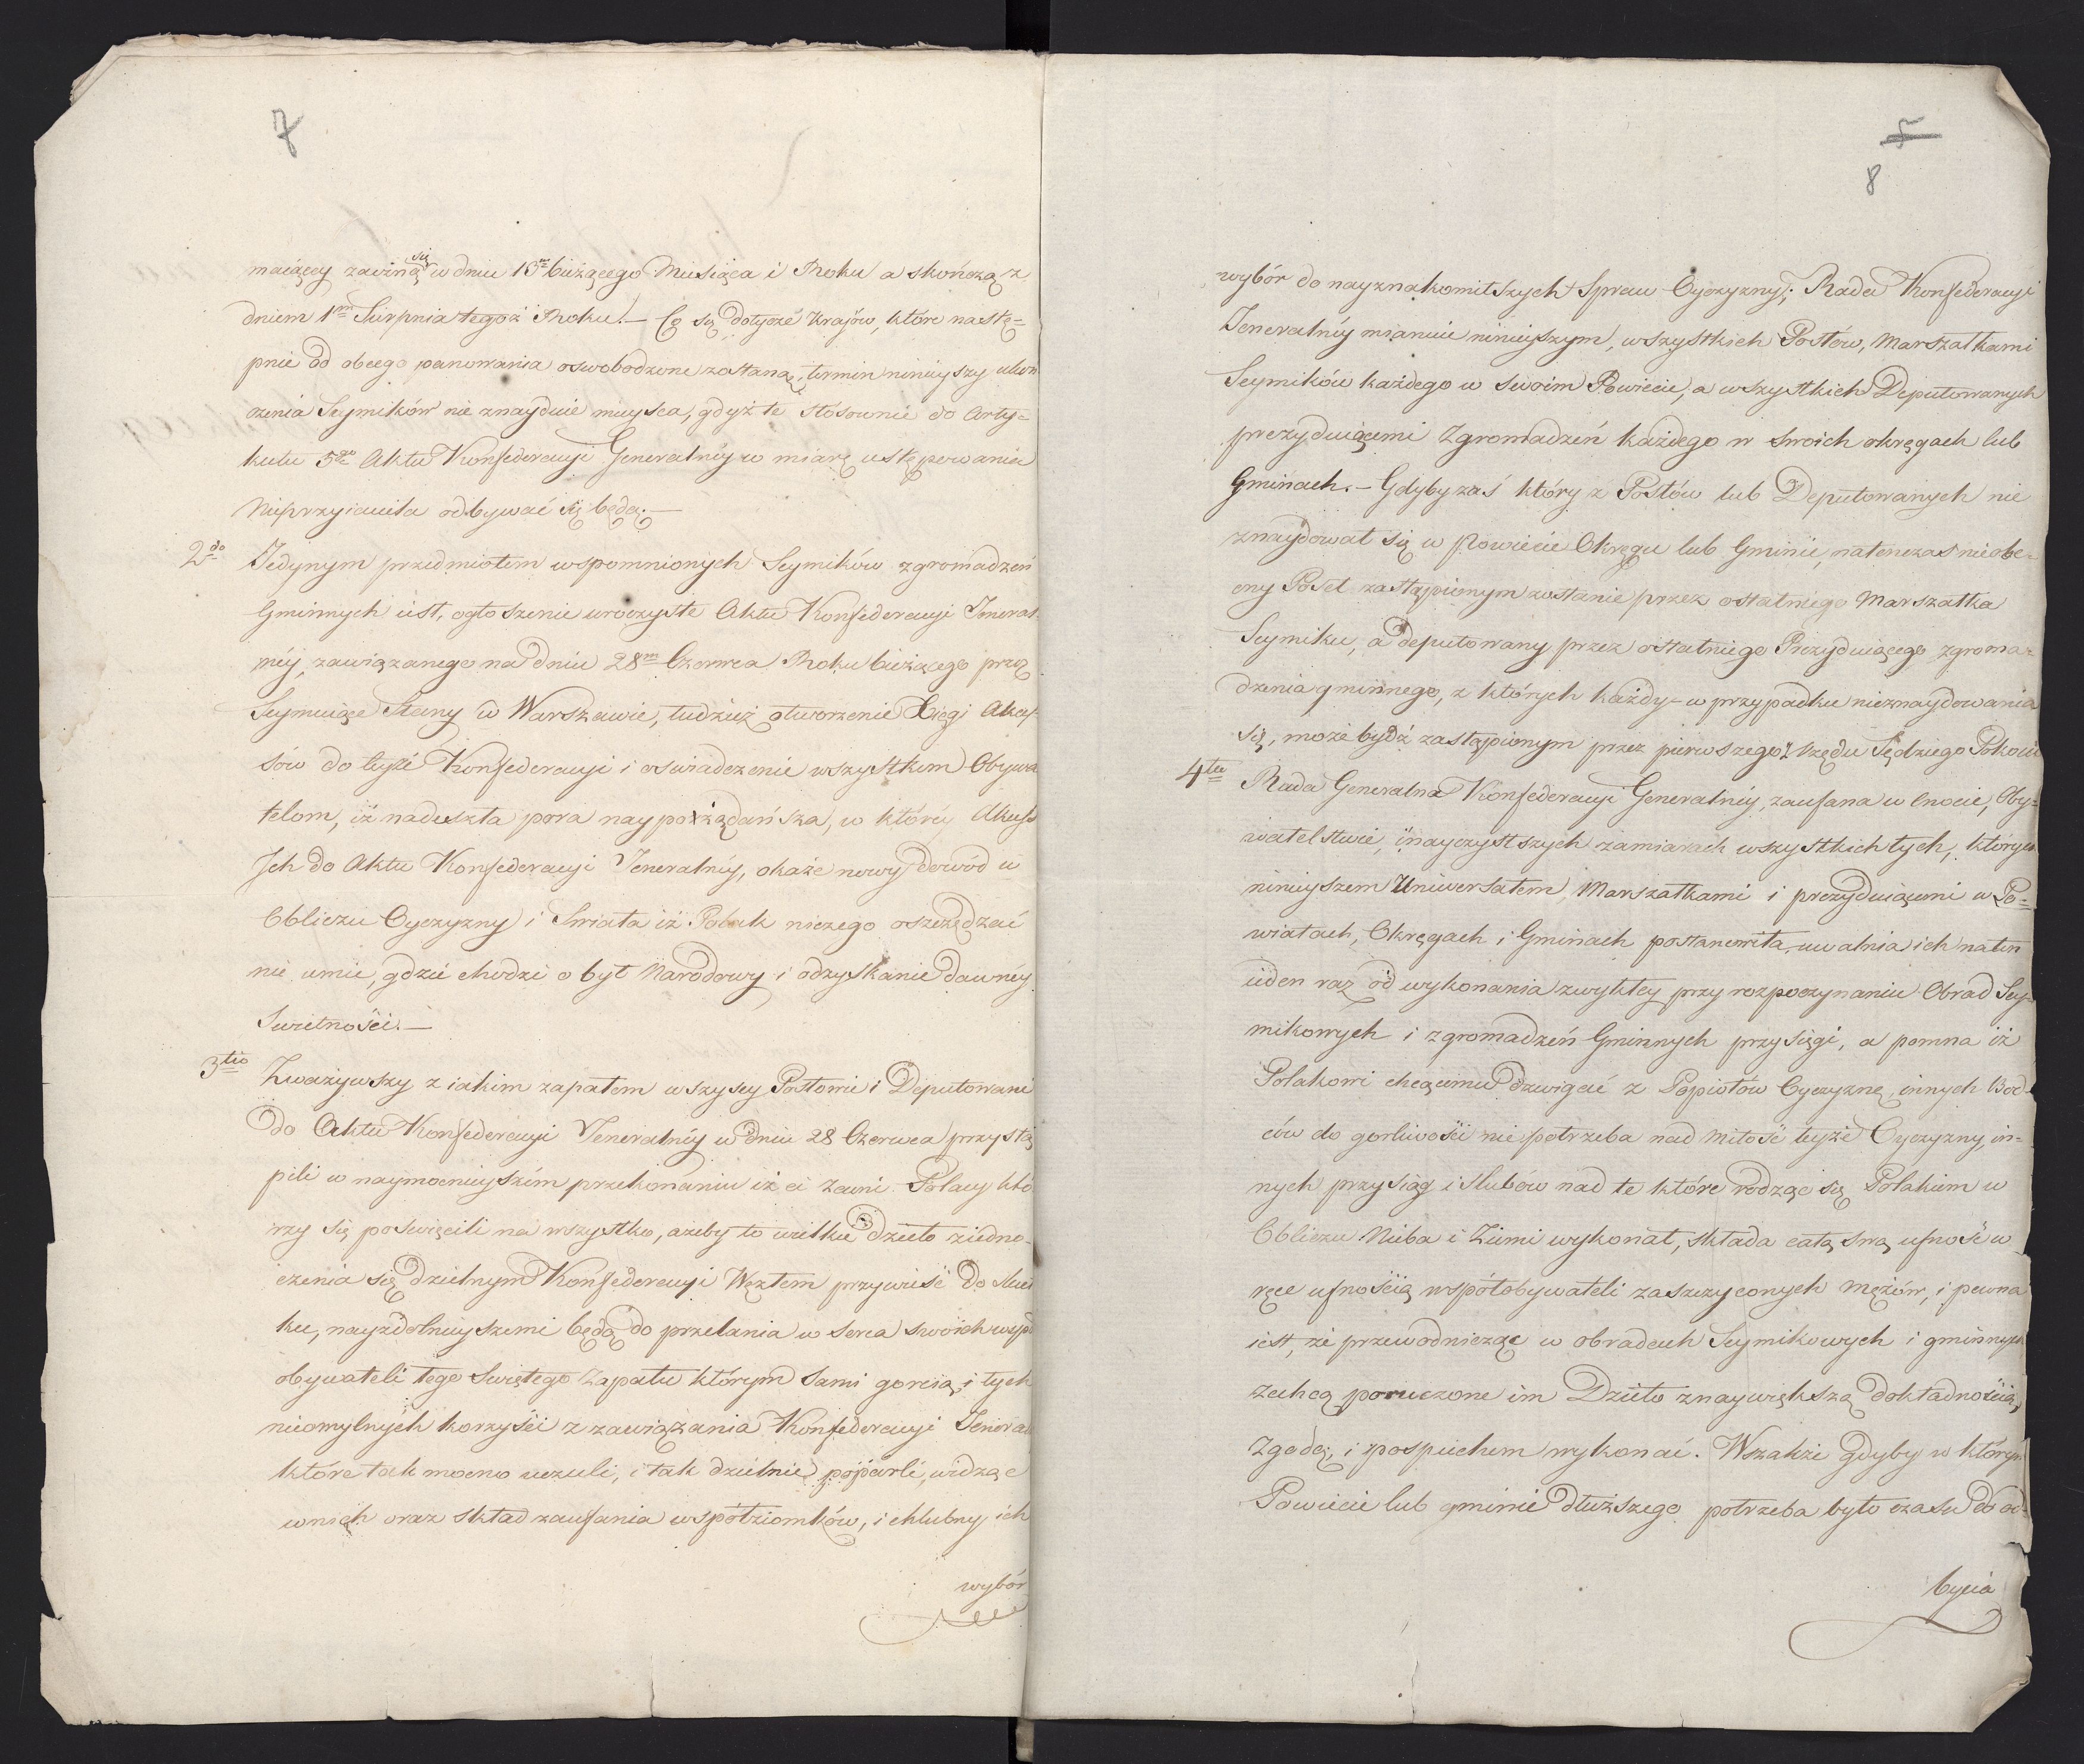 7
maiącey zaczną się w dniu 15m bieżącego Miesiąca i Roku a skończą z
dniem 1m Sierpnia tegoż Roku. — Co się dotycze Kraiów, które nastę=
pnie od obcego panowania oswobodzone zostaną, termin ninieyszy ukoń
czenia Seymików nie znayduie mieysca, gdyż te stosownie do Arty=
kułu 5go Aktu Konfederacyi Generalnéy w miarę ustępowania
Nieprzyiaciela odbywać się będą. —
2do Jedynym przedmiotem wspomnionych Seymików zgromadzeń
Gminnych iest, ogłoszenie uroczyste Aktu Konfederacyi Jeneral=
néy, zawiązanego na dniu 28m Czerwca Roku bieżącego przez
Seymuiące Stany w Warszawie, tudzież otworzenie Xięgi Akces=
sów do teyże Konfederacyi i oswiadczenie wszystkim Obywa
telom, iż nadeszła pora naypożądańsza, w którey Akcess
Ich do Aktu Konfederacyi Jeneralnéy, okaże nowy dowód w
Obliczu Oyczyzny i Swiata iż Polak niczego oszczędzać
nie umie, gdzie chodzi o byt Narodowy i odzyskanie dawnéy
Swietności. —
3tio Zważywszy z iakim zapałem wszyscy Posłowie i Deputowani
do Aktu Konfederacyi Jeneralnéy w dniu 28 Czerwca przystą
pili w naymocnieyszém przekonaniu iż ci Zacni Polacy któ
rzy się poswięcili na wszystko, ażeby to wielkie dzieło ziedno-
czenia się dzielnym Konfederacyi Węzłem przywieść do skut
ku, nayzdolnieyszemi będą do przelania w serca swoich współ
obywateli tego Swiętego Zapału którym sami goreią, i tych
nieomylnych korzyści z zawiązania Konfederacyi Jeneral
które tak mocno uczuli, i tak dzielnie poparli, widząc
w nich oraz skład zaufania współziomków, i chlubny ich
wybór
5
8
wybór do nayznakomitszych Spraw Oyczyzny; Rada Konfederacyi
Jeneralnéy mianuie ninieyszym, wszystkich Posłów, Marszałkami
Seymików każdego w swoim Powiecie, a wszystkich Deputowanych
prezyduiącemi Zgromadzeń każdego w swoich okręgach lub
Gminach. — Gdyby zaś który z Posłów lub Deputowanych nie
znaydował się w Powiecie Okręgu lub Gminie, natenczas nieobe=
cny Poseł zastąpionym zostanie przez ostatniego Marszałka
Seymiku, a deputowany przez ostatniego Prezyduiącego zgroma=
dzenia gminnego, z których każdy w przypadku nieznaydowania
się, może bydź zastąpionym przez pierwszego z rzędu Sędziego Pokoiu
4to Rada Generalna Konfederacyi Generalnéy, zaufana w cnocie, Oby=
watelstwie, i nayczystszych zamiarach wszystkich tych, których
ninieyszem Uniwersałem, Marszałkami i prezyduiącemi w Po=
wiatach, Okręgach i Gminach postanowiła, uwalnia ich na ten
ieden raz od wykonania zwykłey przy rozpoczynaniu Obrad Sey=
mikowych i zgromadzeń Gminnych przysięgi, a pomna iż
Polakowi chcącemu dzwigać z Popiołów Oyczyznę, innych Bodź=
ców do gorliwości nie potrzeba nad miłość teyże Oyczyzny, in=
nych przysiąg i slubów nad te które rodząc się Polakiem w
Obliczu Nieba i Ziemi wykonał, składa całą swą ufność w
ręce ufnością współobywateli zaszczyconych mężów, i pewna
iest, że przewodnicząc w obradach Seymikowych i gminnych
zechcą poruczone im Dzieło z naywiększą dokładnością,
Zgodą, i pospiechem wykonać. Wszakże gdyby w którym
Powiecie lub gminie dłuższego potrzeba było czasu do od=
bycia